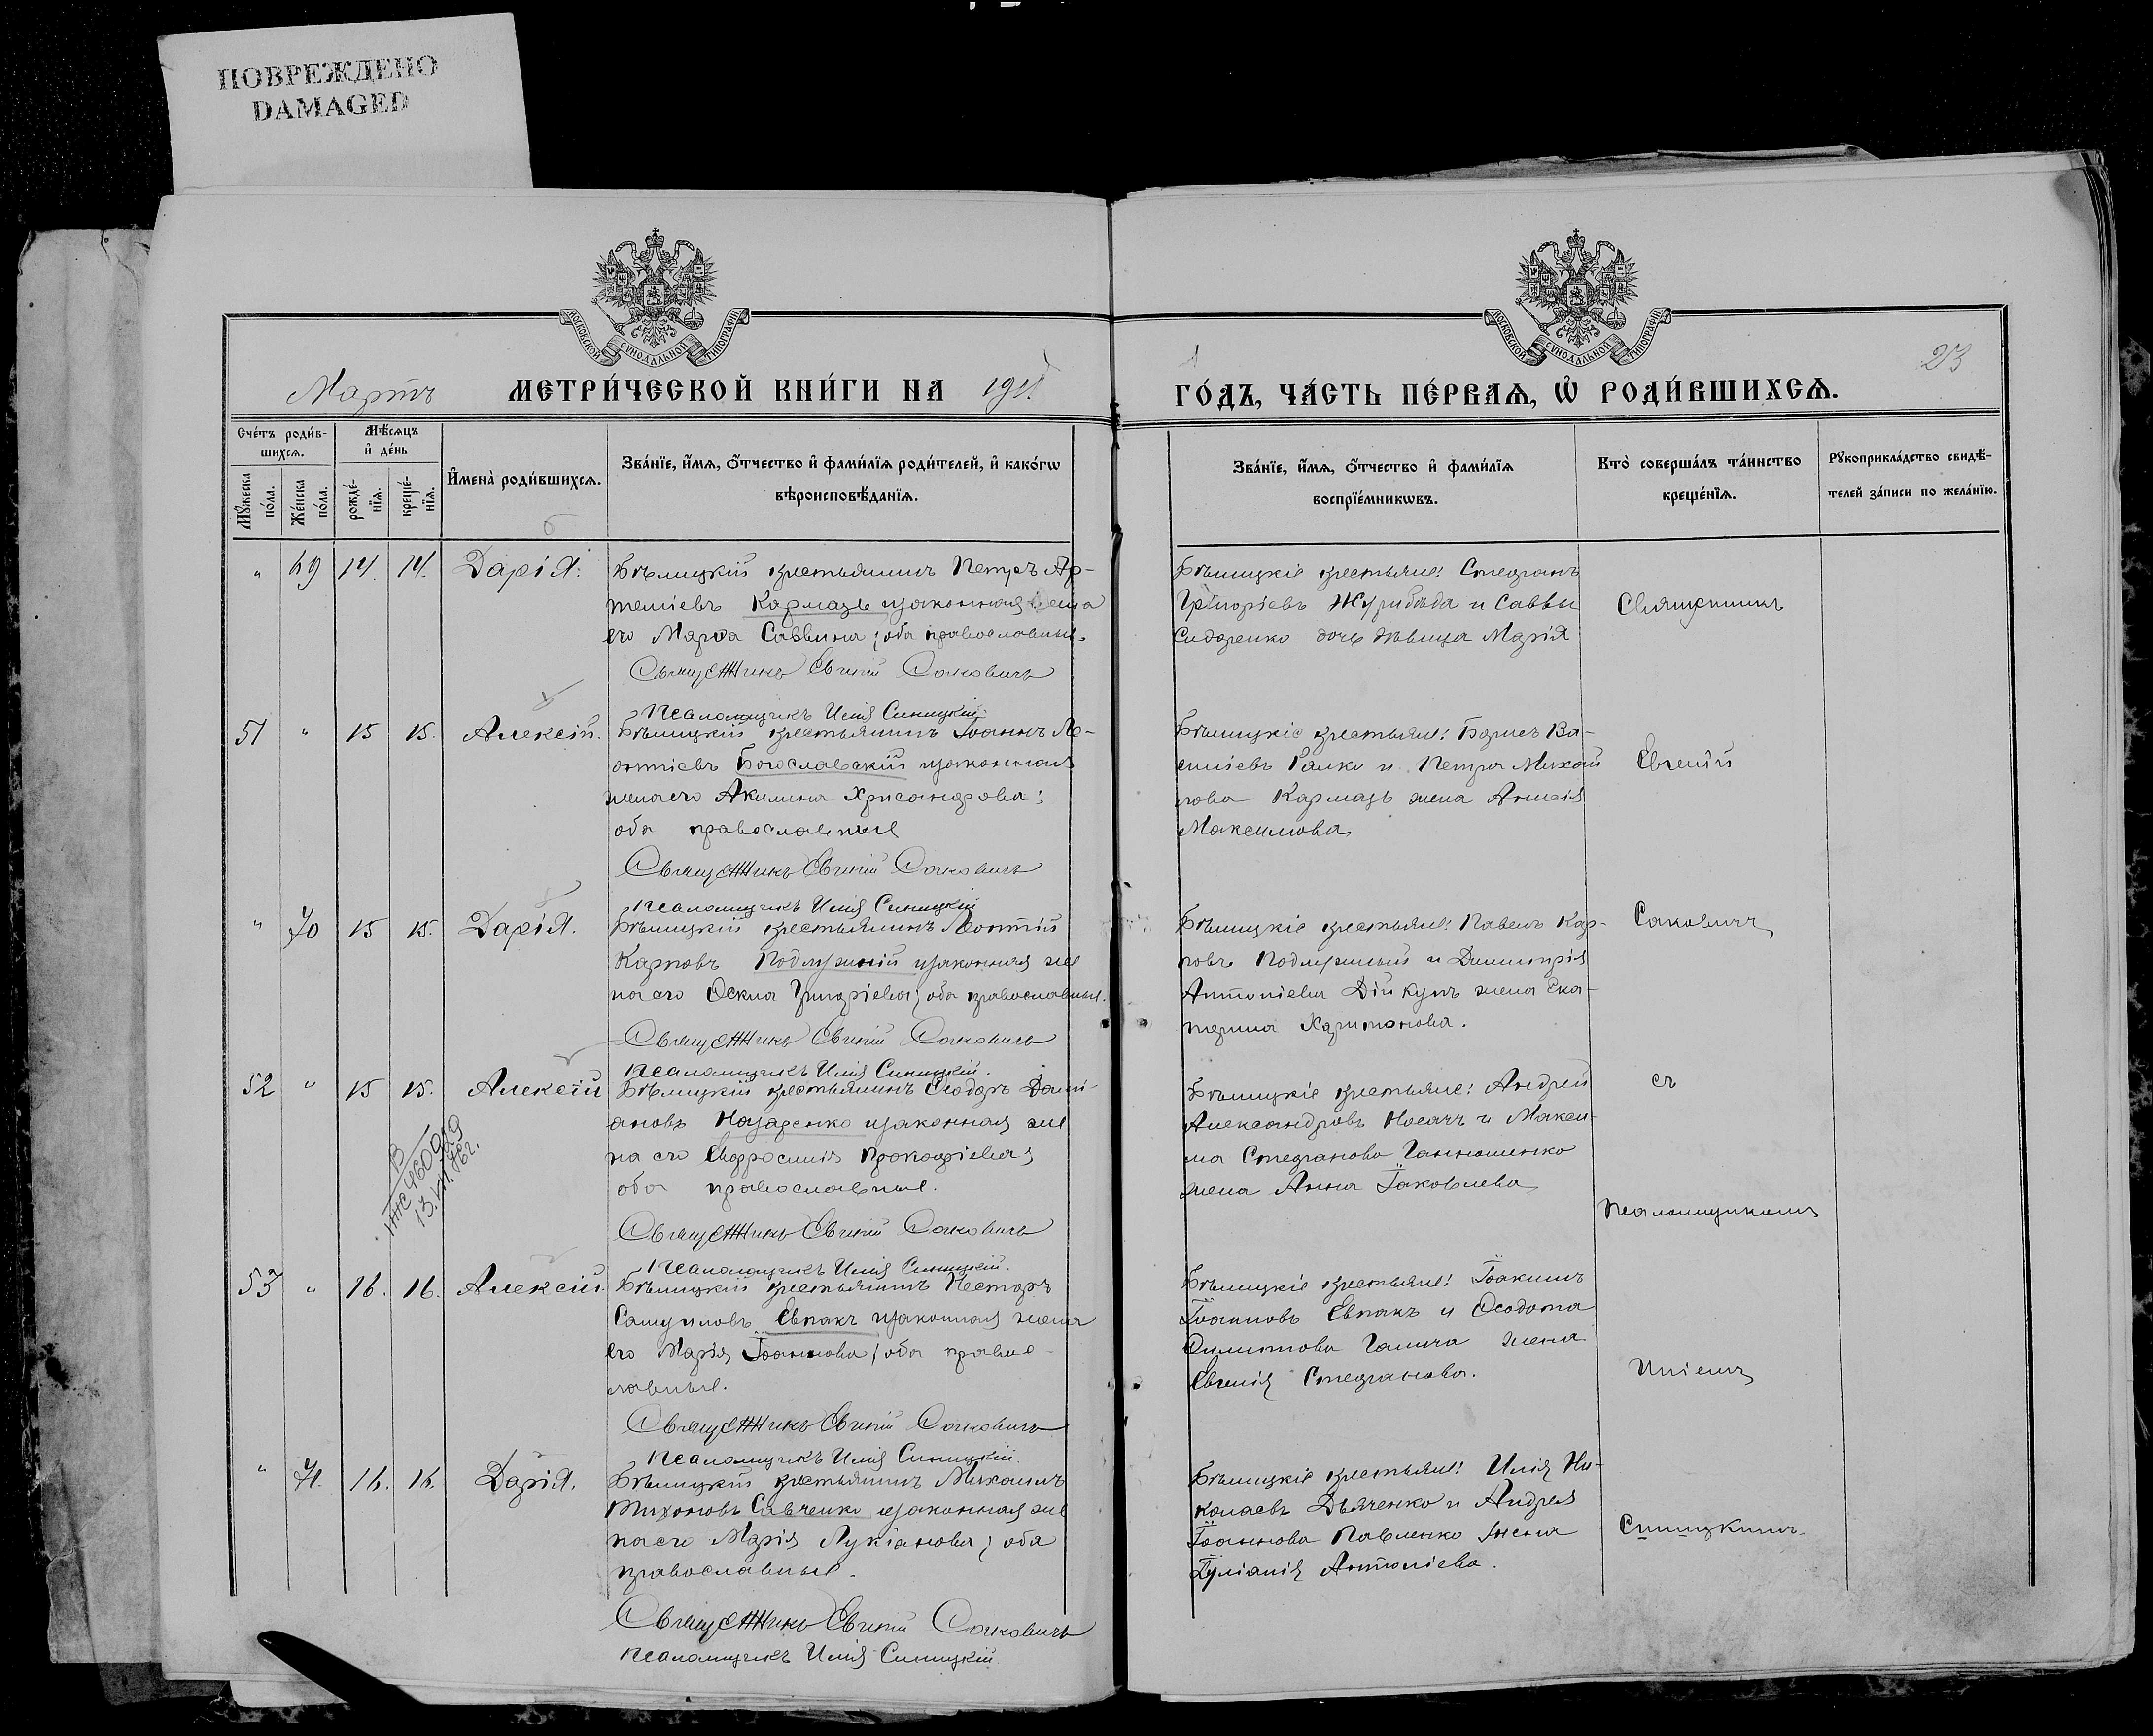 ПОВРЕЖДЕНО
DAMAGED
МОСКОВСКОЙ СУНОДАЛЬНОЙ ТИПОГРАФІИ
МОСКОВСКОЙ СУНОДАЛЬНОЙ ТИПОГРАФІИ
23
Мартъ МЕТРИ́ЧЕСКОЙ КНИ́ГИ НА
ГО́ДЪ, ЧА́СТЬ ПЕ́РВАѦ, Ѡ҆ РОДИ́ВШИХСѦ.
Сче́тъ роди́в-
шихсѧ.
Мꙋ́жеска по́ла.
Же́нска по́ла.
Мѣ́сѧцъ
и҆ де́нь
рожде́-
нїѧ.
креще́-
нїѧ.
И҆мена̀ роди́вшихсѧ.
Зва́нїе, и҆́мѧ, ѻ҆́тчество и҆ фами́лїѧ роди́телей, и҆ како́гѡ
вѣроисповѣ́данїѧ.
Зва́нїе, и҆́мѧ, ѻ҆́тчество и҆ фами́лїѧ
воспрїе́мникѡвъ.
Кто̀ соверша́лъ та́инство
креще́нїѧ.
Рꙋкоприкла́дство свидѣ́-
телей за́писи по жела́нїю.
" 69 14. 14. Дарія. Бѣлицкій крестьянинъ Петръ Ар-
теміевъ Кармазь и законная жена
его Марѳа Саввина; оба православные.
Священникъ Евгеній Саковичъ
Псаломщикъ Илія Синицкій.
Бѣлицкіе крестьяне: Стефанъ
Григоріевъ Журибѣда и Саввы
Сидоренко дочь дѣвица Марія
Священникъ
51 " 15 15. Алексій. Бѣлицкій крестьянинъ Іоаннъ Ле-
онтіевъ Богославскій и законная
жена его Акилина Хрисанфова;
оба православные
Священникъ Евгеній Саковичъ
Псаломщикъ Илія Синицкій
Бѣлицкіе крестьяне: Борисъ Ва-
силіевъ Галко и Петра Михай
лова Кармазь жена Анисія
Максимова
Евгеній
" 70 15 15. Дарія. Бѣлицкій крестьянинъ Леонтій
Карповъ Подлужный и законная же
на его Ѳекла Григоріева; оба православные.
Священникъ Евгеній Саковичъ
Псаломщикъ Илія Синицкій.
Бѣлицкіе крестьяне: Павелъ Кар-
повъ Подлужный и Димитрія
Антоніева Дійкунъ жена Ека-
терина Харитонова.
Саковичъ
52 " 15 15. Алексій Бѣлицкій крестьянинъ Ѳеодоръ Дамі-
ановъ Назаренко и законная же
на его Евфросинія Прокофіева;
оба православные.
Священникъ Евгеній Саковичъ
Псаломщикъ Илія Синицкій.
Бѣлицкіе крестьяне: Андрей
Александровъ Носачъ и Макси-
ма Стефанова Ганношенко
жена Анна Іаковлева
съ
Псаломщикомъ
53 " 16. 16. Алексій. Бѣлицкій крестьянинъ Несторъ
Самуиловъ Евпакъ и законная жена
его Марія Іоаннова; оба правос-
лавные.
Священникъ Евгеній Саковичъ
Псаломщикъ Илія Синицкій.
Бѣлицкіе крестьяне: Іоакимъ
Іоанновъ Евпакъ и Ѳеодота
Филиппова Галича жена
Евгенія Стефанова.
Иліемъ
" 71. 16. 16. Дарія. Бѣлицкій крестьянинъ Михаилъ
Тихоновъ Савченко и законная же
на его Марія Лукіанова; оба
православные.
Священникъ Евгеній Саковичъ
Псаломщикъ Илія Синицкій
Бѣлицкіе крестьяне: Илія Ни-
колаевъ Дьяченко и Андрея
Іоаннова Павленко жена
Іуліанія Антоніева.
Синицкимъ